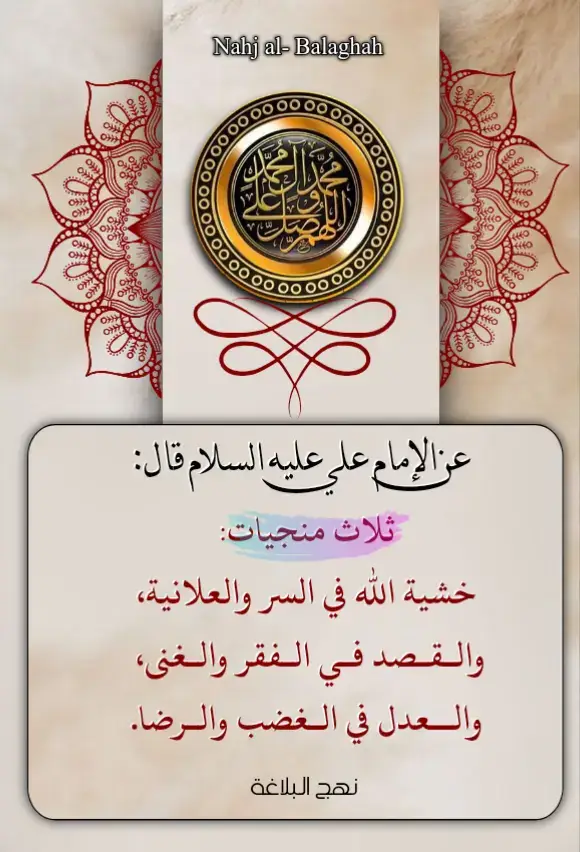 Nahj al- Balaghah
اللهم صل على محمد وآل محمد
عن الإمام علي عليه السلام قال:
ثلاث منجيات:
خشية الله في السر والعلانية،
والـقـصد فـي الـفقر والـغنى،
والـــعدل في الـغضب والـرضا.
نهج البلاغة